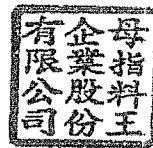 母指料王
企業股份
有限公司